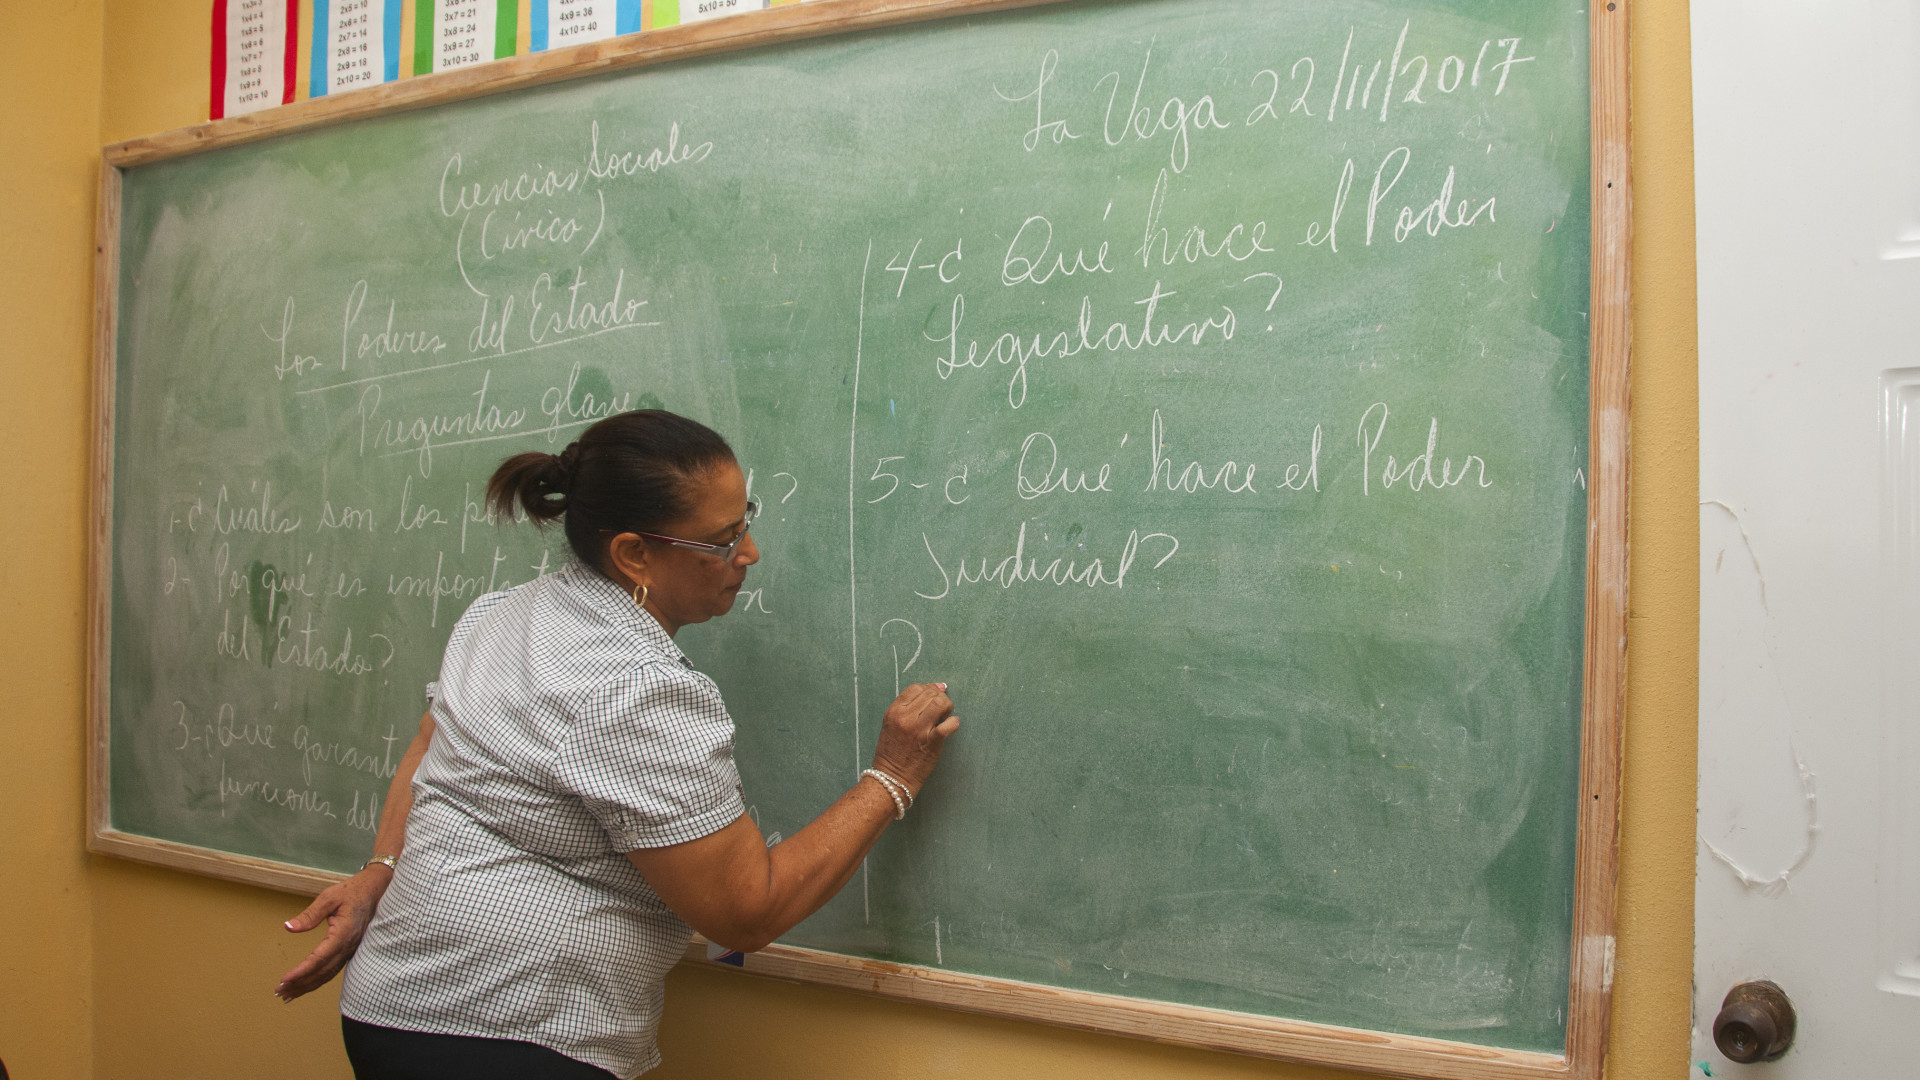 1x3= 3
1x4 = 4
1x5 = 5
1x6 = 6
1x7 = 7
1x8 = 8
1x9 = 9
1x10 = 10
2x5 = 10
2x6 = 12
2x7 = 14
2x8 = 16
2x9 = 18
2x10 = 20
3x7 = 21
3x8 = 24
3x9 = 27
3x10 = 30
4x9 = 36
4x10 = 40
5x10 = 50
La Vega 22/11/2017
Ciencias Sociales
(Cívica)
Los Poderes del Estado
Preguntas glave
1-¿Cuáles son los
2- Por qué es
del Estado?
3-¿Qué
funciones del
4-¿ Qué hace el Poder
Legislativo?
5-¿ Qué hace el Poder
Judicial?
P